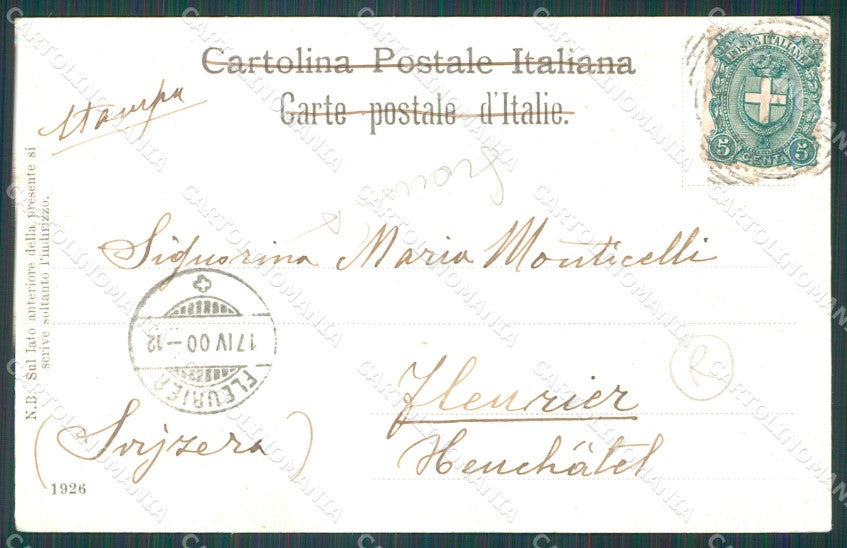 Cartolina Postale Italiana
Carte postale d'Italie.
Stampa
POSTE ITALIANE
5 CENT. 5
Signorina Maria Monticelli
Fleurier
Neuchâtel
(Svizzera)
17 IV 00 – 12
FLEURIER
R
N.B. Sul lato anteriore della presente si
scrive soltanto l'indirizzo.
1926
CARTOLINOMANIA